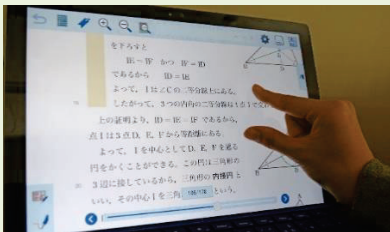 を下ろすと
IE＝IF かつ IF＝ID
であるから ID＝IE
よって，Iは∠Cの二等分線上にある。
したがって，3つの内角の二等分線は1点Iで
上の証明より，ID＝IE＝IFであるから，
点Iは3点D，E，Fから等距離にある。
よって，Iを中心としてD，E，Fを通る
円をかくことができる。この円は三角形の
20 3辺に接しているから，三角形の内接円と
いい，その中心Iを三角 という。